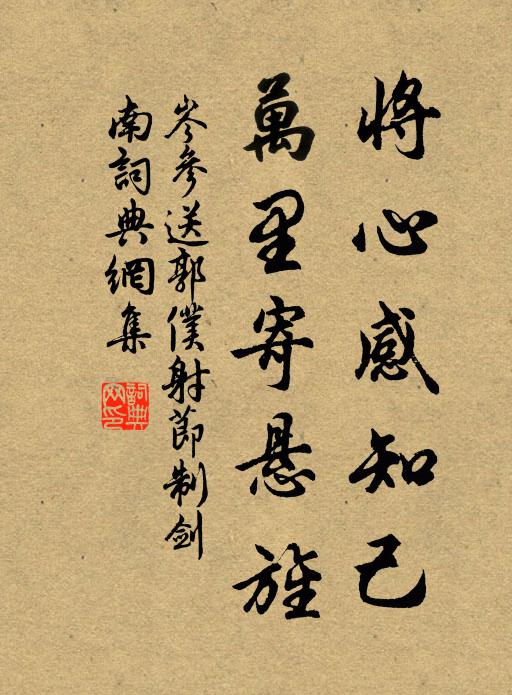 將心感知己
萬里寄懸旌
岑參送郭僕射節制劍
南詞典網集
詞典網印